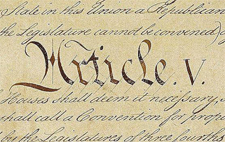 State in this Union a Republican
the Legislature cannot be convened)
Article. V.
Houses shall deem it necessary, s
shall call a Convention for propo
by the Legislatures of three fourths